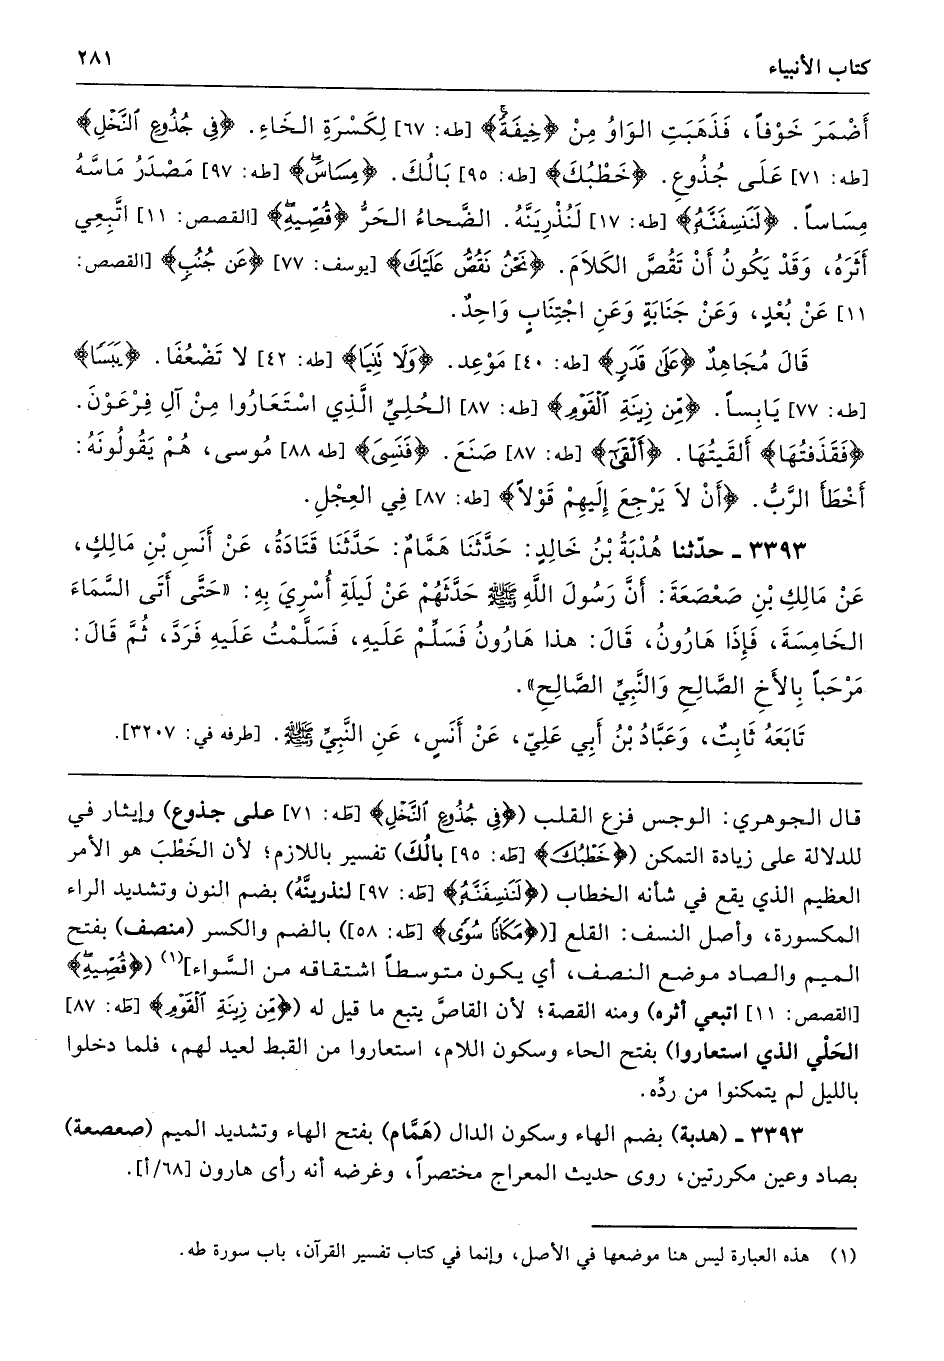 كتاب الأنبياء
٢٨١
أَضْمَرَ خَوْفاً، فَذَهَبَتِ الوَاوُ مِنْ ﴿خِيفَةً﴾ [طه: ٦٧] لِكَسْرَةِ الخَاءِ. ﴿فِي جُذُوعِ ٱلنَّخْلِ﴾
[طه: ٧١] عَلَى جُذُوعِ. ﴿خَطْبُكَ﴾ [طه: ٩٥] بَالُكَ. ﴿مِسَاسَ﴾ [طه: ٩٧] مَصْدَرُ مَاسَّهُ
مِسَاساً. ﴿لَنَنسِفَنَّهُ﴾ [طه: ١٧] لَنُذْرِيَنَّهُ. الضَّحاءُ الحَرُّ ﴿قُصِّيهِ﴾ [القصص: ١١] اتَّبِعِي
أَثَرَهُ، وَقَدْ يَكُونُ أَنْ تَقُصَّ الكَلاَمَ. ﴿نَحْنُ نَقُصُّ عَلَيْكَ﴾ [يوسف: ٧٧] ﴿عَن جُنُبٍ﴾ [القصص:
١١] عَنْ بُعْدٍ، وَعَنْ جَنَابَةٍ وَعَنِ اجْتِنَابٍ وَاحِدٌ.
قَالَ مُجَاهِدٌ ﴿عَلَىٰ قَدَرٍ﴾ [طه: ٤٠] مَوْعِد. ﴿وَلَا تَنِيَا﴾ [طه: ٤٢] لا تَضْعُفَا. ﴿يَبَسًا﴾
[طه: ٧٧] يَابِساً. ﴿مِّن زِينَةِ ٱلْقَوْمِ﴾ [طه: ٨٧] الحُلِيِّ الَّذِي اسْتَعَارُوا مِنْ آلِ فِرْعَوْنَ.
﴿فَقَذَفْتُهَا﴾ أَلقَيتُهَا. ﴿أَلْقَى﴾ [طه: ٨٧] صَنَعَ. ﴿فَنَسِىَ﴾ [طه ٨٨] مُوسى، هُمْ يَقُولُونَهُ:
أَخْطَأَ الرَّبُّ. ﴿أَنْ لاَ يَرْجِعَ إِلَيهِمْ قَوْلاً﴾ [طه: ٨٧] فِي العِجْلِ.
٣٣٩٣ ـ حدّثنا هُدْبَةُ بْنُ خَالِدٍ: حَدَّثَنَا هَمَّامٌ: حَدَّثَنَا قَتَادَةُ، عَنْ أَنَسِ بْنِ مَالِكٍ،
عَنْ مَالِكِ بْنِ صَعْصَعَةَ: أَنَّ رَسُولَ اللَّهِ ﷺ حَدَّثَهُمْ عَنْ لَيلَةِ أُسْرِيَ بِهِ: «حَتَّى أَتَى السَّمَاءَ
الخَامِسَةَ، فَإِذَا هَارُونُ، قَالَ: هذا هَارُونُ فَسَلِّمْ عَلَيهِ، فَسَلَّمْتُ عَلَيهِ فَرَدَّ، ثُمَّ قَالَ:
مَرْحَباً بِالأَخِ الصَّالِحِ وَالنَّبِيِّ الصَّالِحِ».
تَابَعَهُ ثَابِتٌ، وَعَبَّادُ بْنُ أَبِي عَلِيّ، عَنْ أَنَسٍ، عَنِ النَّبِيِّ ﷺ. [طرفه في: ٣٢٠٧].
قال الجوهري: الوجس فزع القلب (﴿فِي جُذُوعِ ٱلنَّخْلِ﴾ [طه: ٧١] على جذوع) وإيثار في
للدلالة على زيادة التمكن (﴿خَطْبُكَ﴾ [طه: ٩٥] بالُكَ) تفسير باللازم؛ لأن الخَطْبَ هو الأمر
العظيم الذي يقع في شأنه الخطاب (﴿لَنَنسِفَنَّهُ﴾ [طه: ٩٧] لنذرينَّهُ) بضم النون وتشديد الراء
المكسورة، وأصل النسف: القلع [(﴿مَكَانًا سُوًى﴾ [طه: ٥٨]) بالضم والكسر (منصف) بفتح
الميم والصاد موضع النصف، أي يكون متوسطاً اشتقاقه من السَّواء](١) (﴿قُصِّيهِ﴾
[القصص: ١١] اتبعي أثره) ومنه القصة؛ لأن القاصَّ يتبع ما قيل له (﴿مِّن زِينَةِ ٱلْقَوْمِ﴾ [طه: ٨٧]
الحَلْي الذي استعاروا) بفتح الحاء وسكون اللام، استعاروا من القبط لعيد لهم، فلما دخلوا
بالليل لم يتمكنوا من ردِّه.
٣٣٩٣ ـ (هدبة) بضم الهاء وسكون الدال (هَمَّام) بفتح الهاء وتشديد الميم (صعصعة)
بصاد وعين مكررتين، روى حديث المعراج مختصراً، وغرضه أنه رأى هارون [٦٨/أ].
(١) هذه العبارة ليس هنا موضعها في الأصل، وإنما في كتاب تفسير القرآن، باب سورة طه.